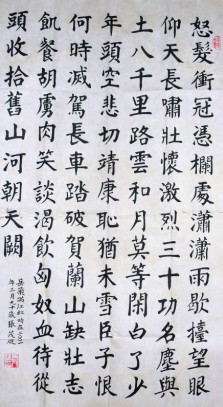 怒髮衝冠憑欄處瀟瀟雨擡望眼
仰天長嘯壯懷激烈三十功名塵與
土八千里路雲和月莫等閑白了少
年頭空悲切靖康恥猶未雪臣子恨
何時滅駕長車踏破賀蘭山缺壯志
飢餐胡虜肉笑談渴飲匈奴血待從
頭收拾舊山河朝天闕
岳飛滿江紅時在
年三月